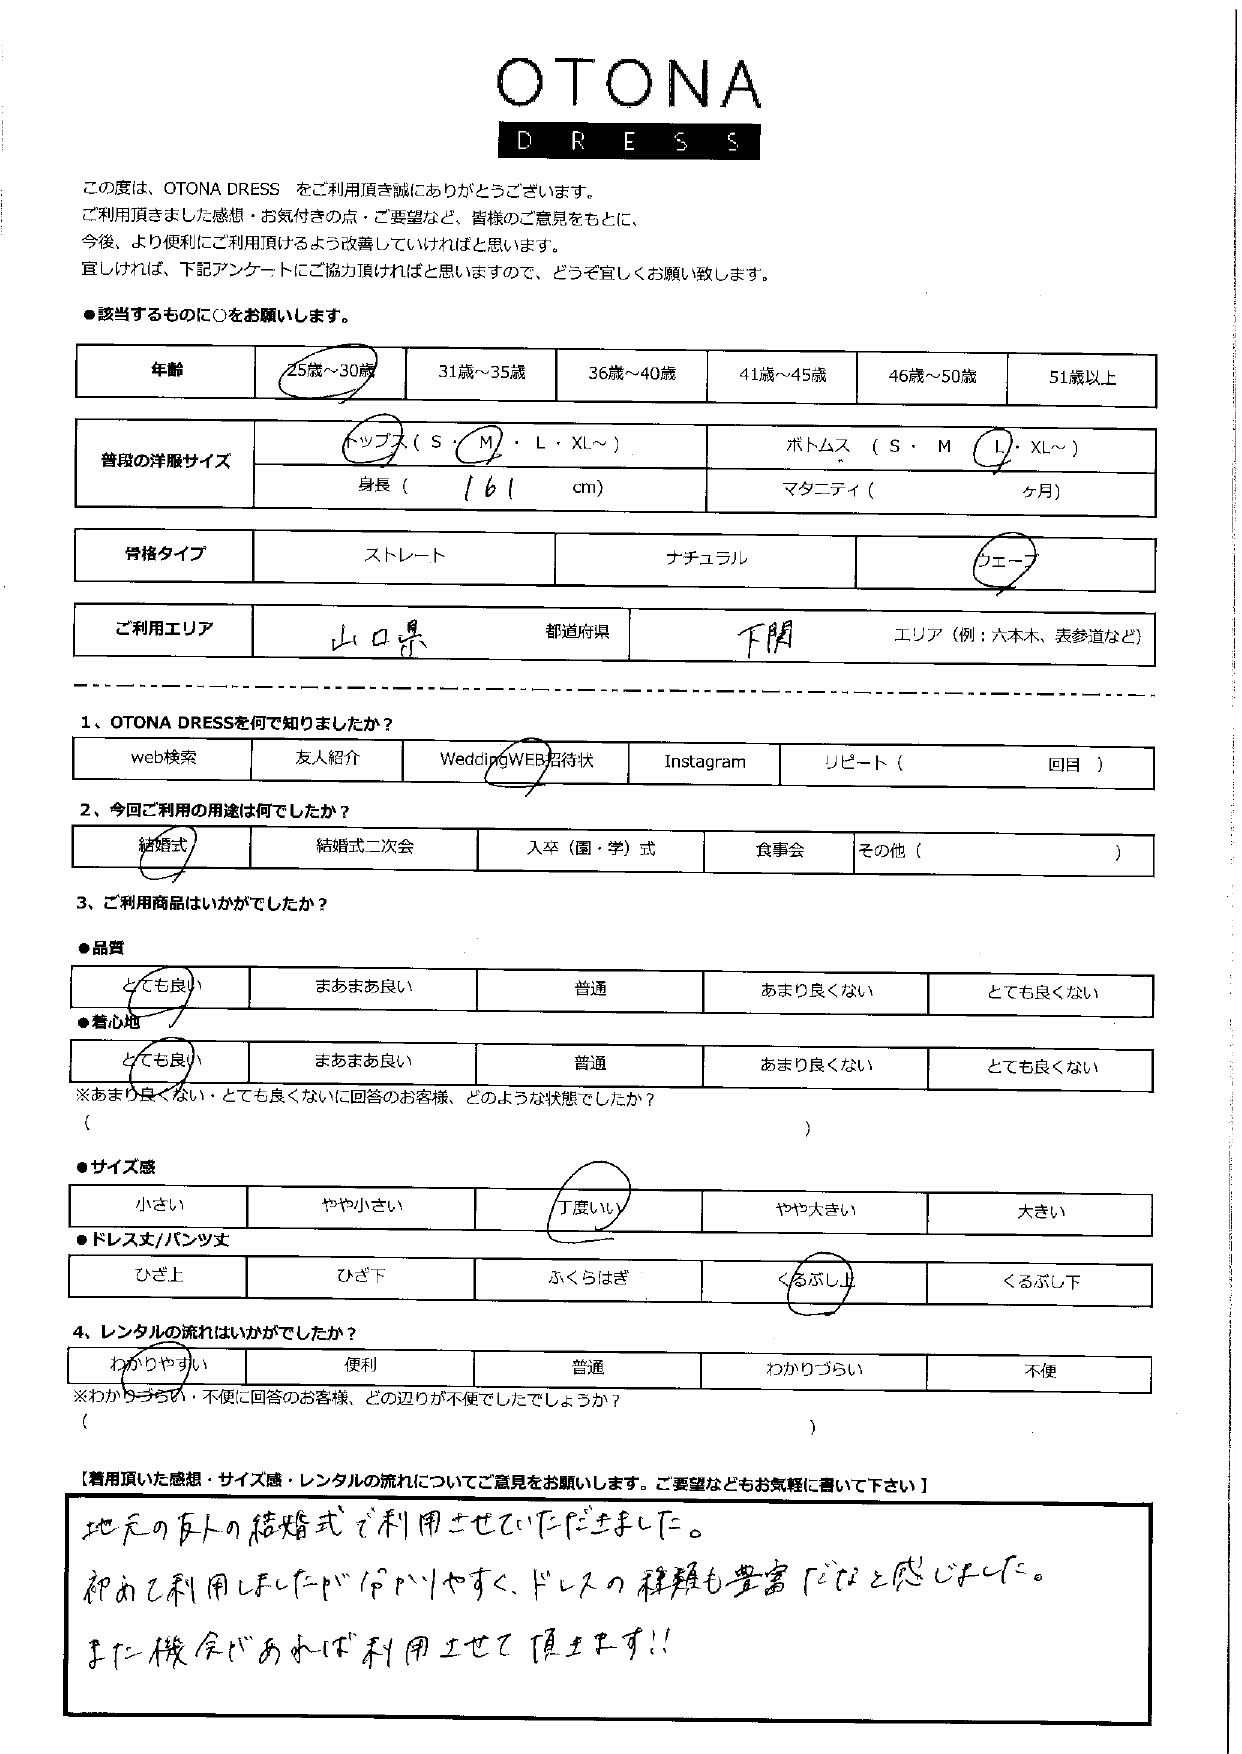 OTONA
DRESS
この度は、OTONA DRESS　をご利用頂き誠にありがとうございます。
ご利用頂きました感想・お気付きの点・ご要望など、皆様のご意見をもとに、
今後、より便利にご利用頂けるよう改善していければと思います。
宜しければ、下記アンケートにご協力頂ければと思いますので、どうぞ宜しくお願い致します。
●該当するものに○をお願いします。
年齢 25歳～30歳 31歳～35歳 36歳～40歳 41歳～45歳 46歳～50歳 51歳以上
普段の洋服サイズ トップス ( S ・ M ・ L ・ XL～ ) ボトムス ( S ・ M L ・ XL～ )
身長 ( 161 cm) マタニティ ( ヶ月)
骨格タイプ ストレート ナチュラル ウェーブ
ご利用エリア 山口県 都道府県 下関 エリア（例：六本木、表参道など）
1、OTONA DRESSを何で知りましたか？
web検索 友人紹介 WeddingWEB招待状 Instagram リピート（ 回目 ）
2、今回ご利用の用途は何でしたか？
結婚式 結婚式二次会 入卒（園・学）式 食事会 その他（ ）
3、ご利用商品はいかがでしたか？
●品質
とても良い まあまあ良い 普通 あまり良くない とても良くない
●着心地
とても良い まあまあ良い 普通 あまり良くない とても良くない
※あまり良くない・とても良くないに回答のお客様、どのような状態でしたか？
( )
●サイズ感
小さい やや小さい 丁度いい やや大きい 大きい
●ドレス丈/パンツ丈
ひざ上 ひざ下 ふくらはぎ くるぶし上 くるぶし下
4、レンタルの流れはいかがでしたか？
わかりやすい 便利 普通 わかりづらい 不便
※わかりづらい・不便に回答のお客様、どの辺りが不便でしたでしょうか？
( )
【着用頂いた感想・サイズ感・レンタルの流れについてご意見をお願いします。ご要望などもお気軽に書いて下さい】
地元の友人の結婚式で利用させていただきました。
初めて利用しましたが分かりやすく、ドレスの種類も豊富だなと感じました。
また機会があれば利用させて頂きます!!